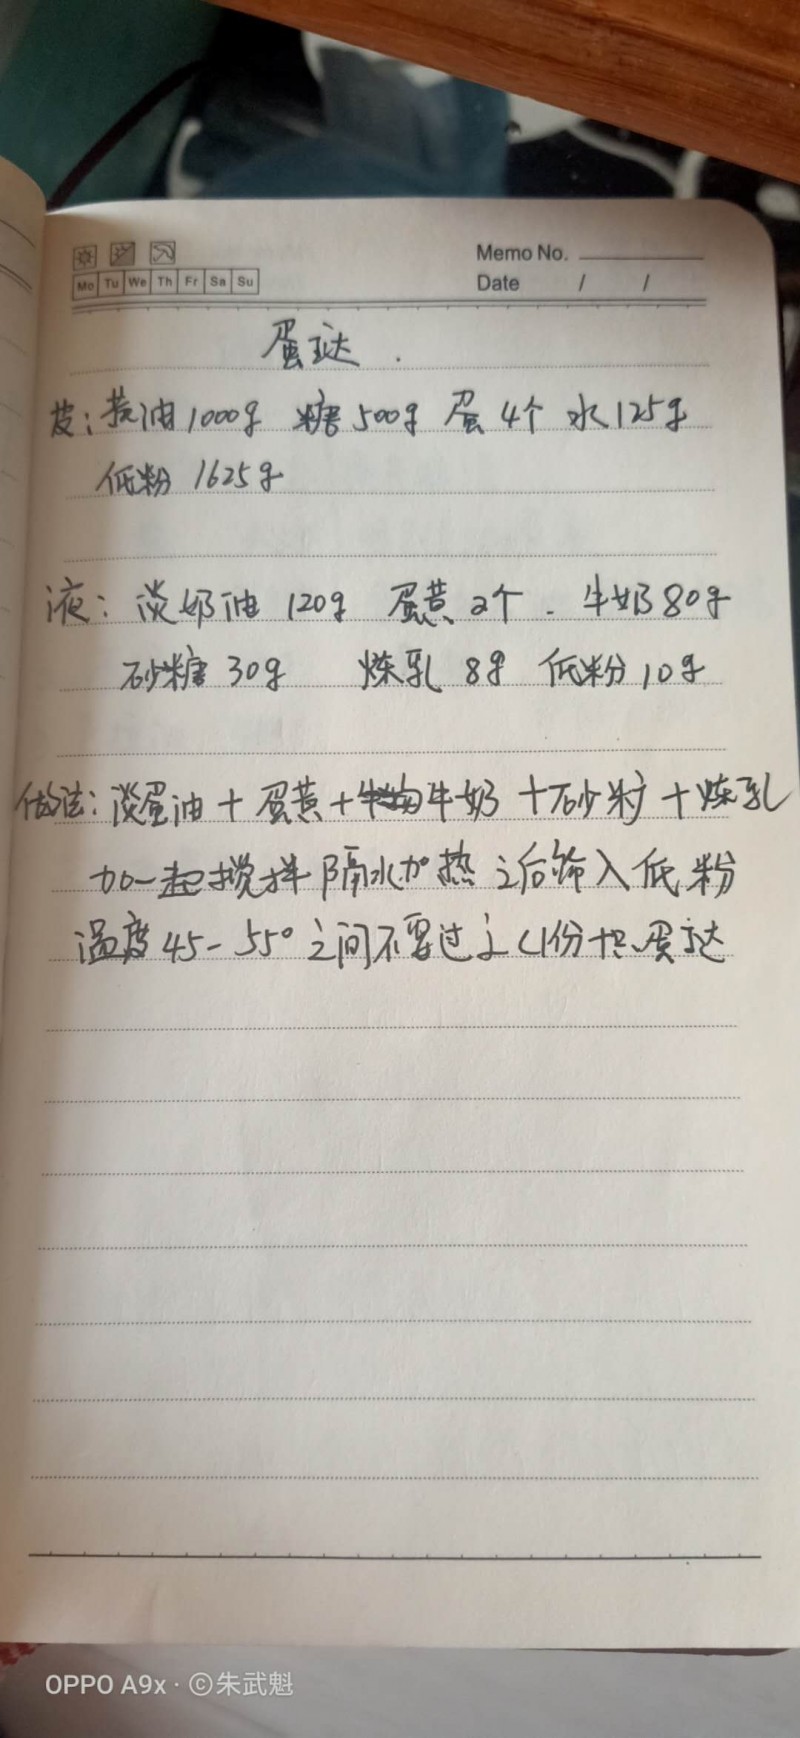 Memo No.
Mo Tu We Th Fr Sa Su
Date / /
蛋挞.
皮:黄油1000g 糖500g 蛋4个 水125g
低粉 1625g
液:淡奶油 120g 蛋黄2个. 牛奶80g
砂糖30g 炼乳 8g 低粉10g
做法:淡蛋油+蛋黄+牛奶+砂籽+炼乳
加一起搅拌隔水加热之后筛入低粉
温度45-55°之间不要过 (1份 蛋挞
OPPO A9x · ©朱武魁